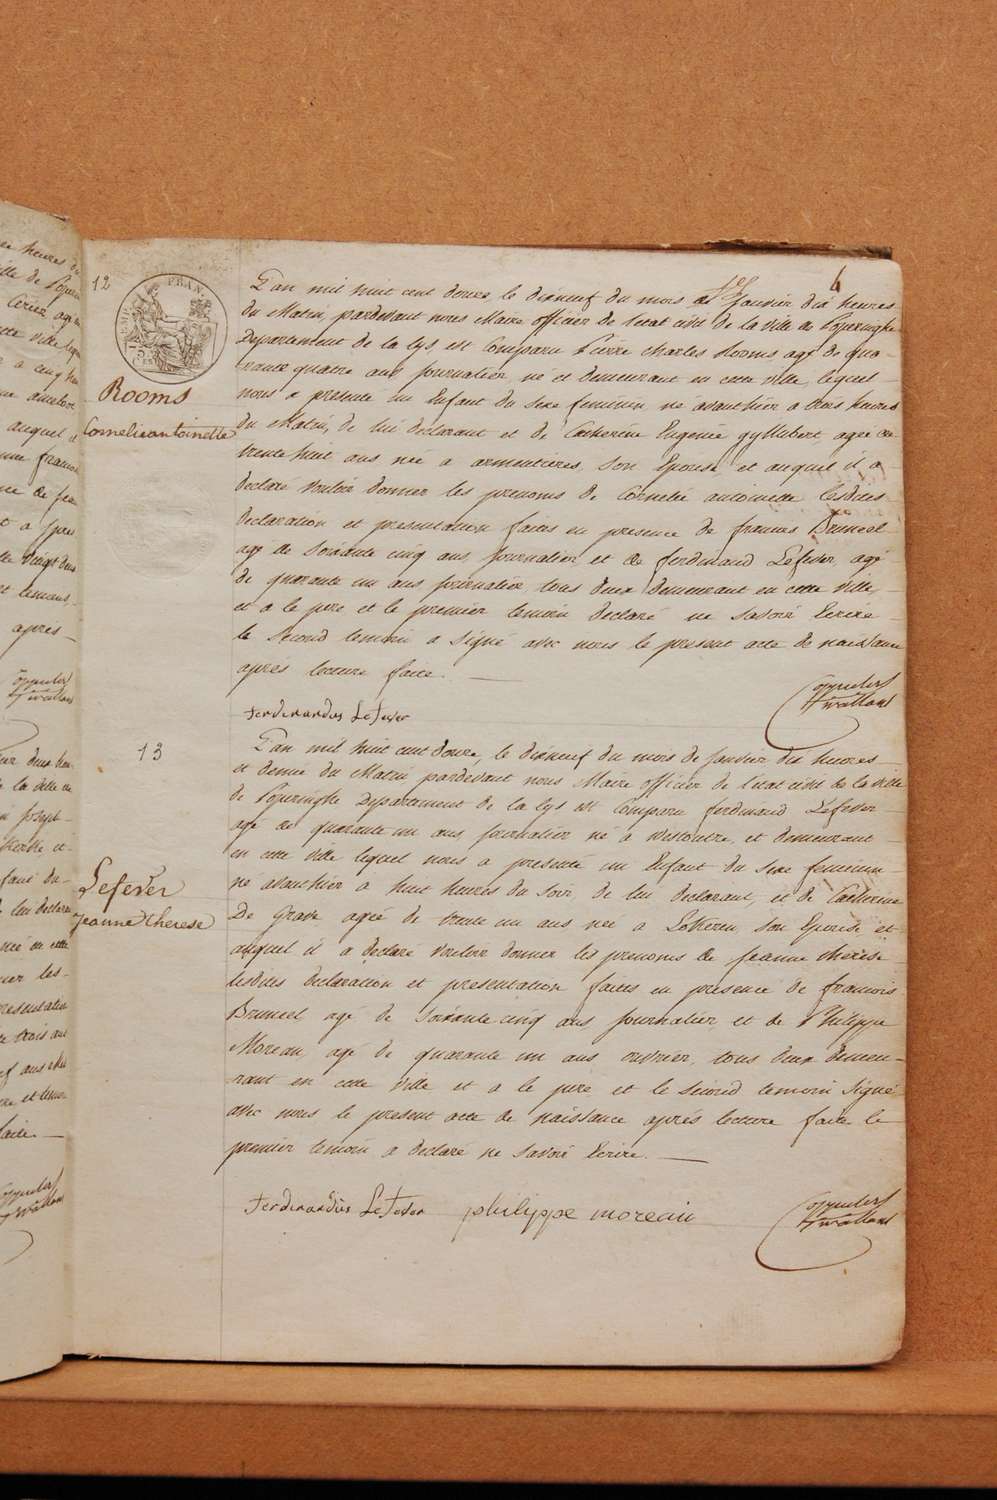 6
12
Rooms
Cornelie antoinette
L'an mil huit cent douze, le dixneuf du mois de Janvier dix heures
du Matin, pardevant nous Maire officier de l'etat civil de la ville de Poperinghe
Departement de la Lys est Comparu Pierre Charles Rooms agé de qua-
rante quatre ans Journalier, né et demeurant en cette ville, lequel
nous a presenté un Enfant du sexe feminin né avanthier a trois heures
du Matin, de lui declarant et de Catherine Eugenie gyllebert, agée de
trente huit ans née a armentieres, son Epouse, et auquel il a
declaré vouloir donner les prenoms de Cornelie antoinette lesdites
declaration et presentation faites en presence de francois Bruneel
agé de soixante cinq ans, Journalier et de ferdinand Lefever, agé
de quarante un ans journalier, tous deux demeurant en cette ville,
et a le pere et le premier temoin declaré ne savoir Ecrire
le second temoin a signé avec nous le present acte de naissance
après lecture faite.
Ferdinandus LeFever
13
Lefever
Jeanne Therese
L'an mil huit cent douze, le dixneuf du mois de Janvier dix heures
et demie du Matin pardevant nous Maire officier de l'etat civil de la ville
de Poperinghe Departement de la Lys est Comparu ferdinand Lefever
agé de quarante un ans Journalier né a Westoutre, et demeurant
en cette ville lequel nous a presenté un Enfant du sexe feminin
né avanthier a huit heures du Soir, de lui declarant, et de Catherine
De Grave agée de trente un ans née a Lokeren, son Epouse et
auquel il a declaré vouloir donner les prenoms de Jeanne therèse
lesdites declaration et presentation faites en presence de francois
Bruneel agé de soixante cinq ans journalier et de Philippe
Moreau, agé de quarante un ans ouvrier, tous deux demeu-
rant en cette ville et a le pere et le second temoin signé
avec nous le present acte de naissance après lecture faite le
premier temoin a declaré ne savoir Ecrire.
Ferdinandus LeFever philippe moreau